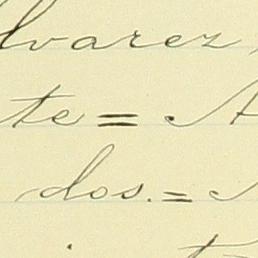 lvarez
te = A
dos. =